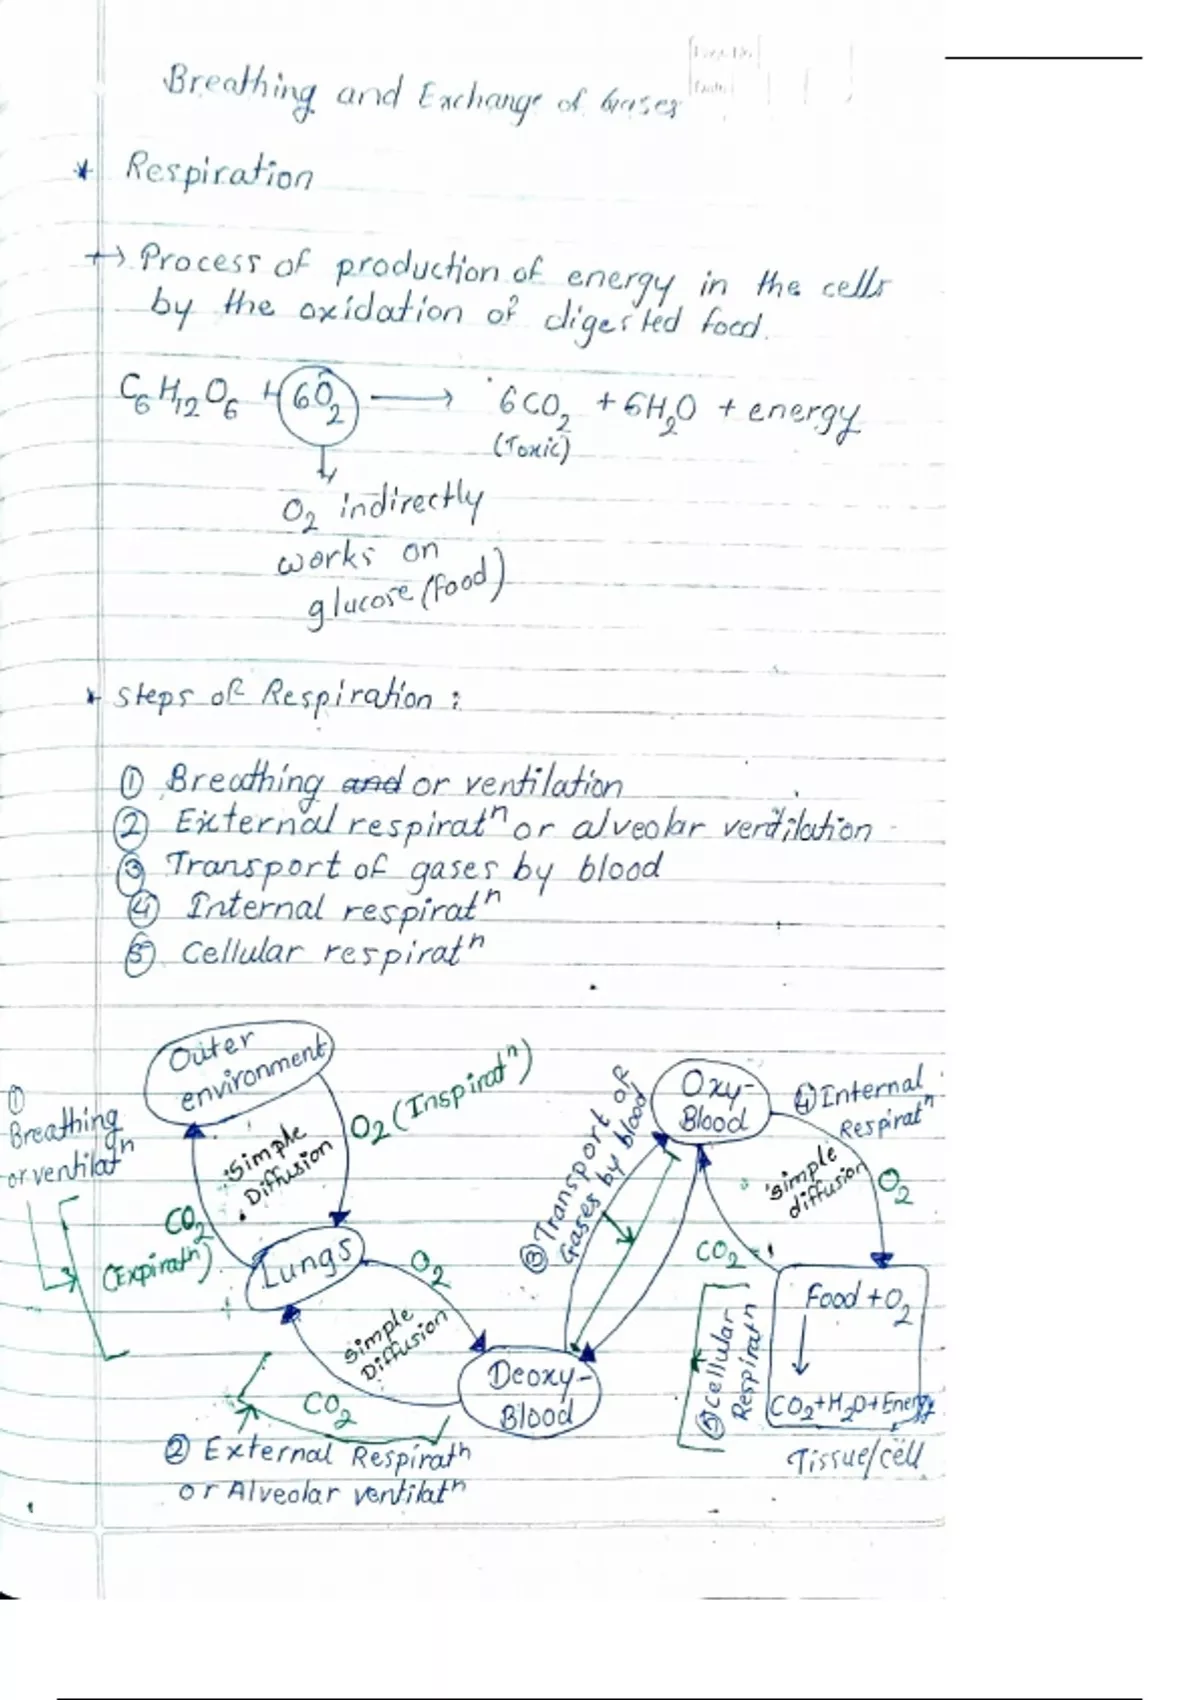 Page No.
Date
Breathing and Exchange of Gases
* Respiration
→ Process of production of energy in the cells
by the oxidation of digested food.
C6H12O6 + 6O2 ⟶ 6CO2 + 6H2O + energy
(Toxic)
↳
O2 indirectly
works on
glucose (food)
* Steps of Respiration :
① Breathing ~~and~~ or ventilation
② External respiratⁿ or alveolar ventilation
③ Transport of gases by blood
④ Internal respiratⁿ
⑤ Cellular respiratⁿ
Outer
environment
① Breathing
or ventilatⁿ
Simple
Diffusion
O2 (Inspiratⁿ)
CO2
(Expiratⁿ)
Lungs
O2
Simple
Diffusion
CO2
② External Respiratⁿ
or Alveolar ventilatⁿ
Deoxy-
Blood
③ Transport of
Gases by blood
Oxy-
Blood
④ Internal
Respiratⁿ
simple
diffusion
O2
CO2
⑤ Cellular
Respiratⁿ
Food + O2
CO2+H2O+Energy
Tissue/cell